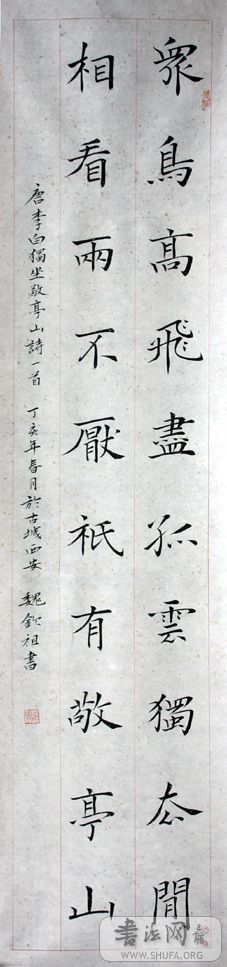 衆鳥髙飛盡孤雲獨厺閒
相看兩不厭祇有敬亭山
唐李白獨坐敬亭山詩一首 丁亥年春月於古城西安 魏欽祖書
書法网
WWW.SHUFA.ORG